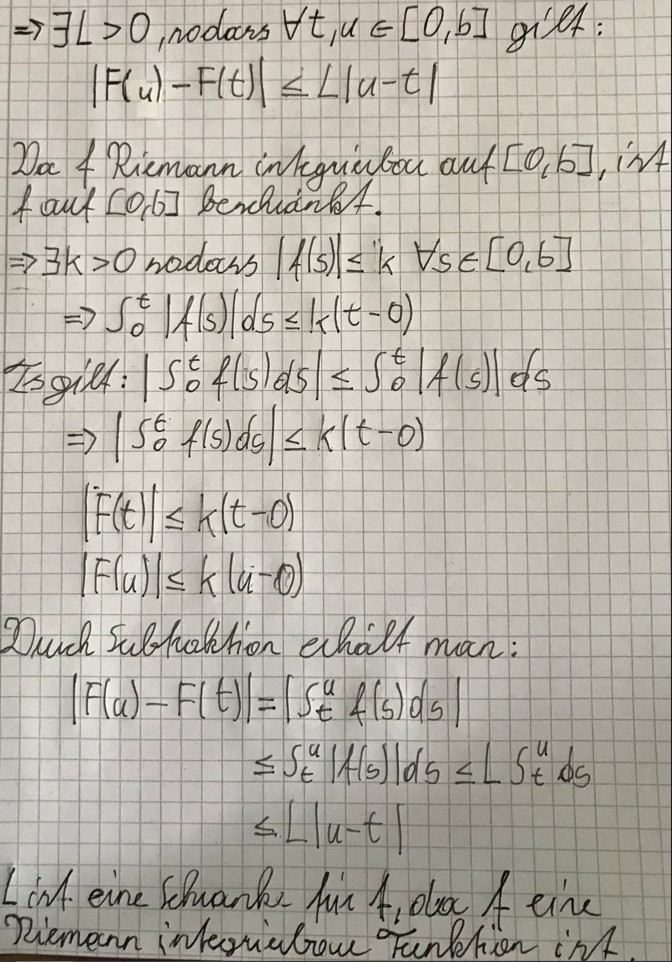 ⇒ ∃L > 0, sodass ∀t, u ∈ [0,b] gilt:
|F(u) − F(t)| ≤ L|u−t|
Da f Riemann integrierbar auf [0,b], ist
f auf [0,b] beschränkt.
⇒ ∃k > 0 sodass |f(s)| ≤ k ∀s ∈ [0,b]
⇒ ∫₀ᵗ |f(s)| ds ≤ k(t−0)
Es gilt: |∫₀ᵗ f(s) ds| ≤ ∫₀ᵗ |f(s)| ds
⇒ |∫₀ᵗ f(s) ds| ≤ k(t−0)
|F(t)| ≤ k(t−0)
|F(u)| ≤ k(u−0)
Durch Subtraktion erhält man:
|F(u) − F(t)| = |∫ₜᵘ f(s) ds|
≤ ∫ₜᵘ |f(s)| ds ≤ L ∫ₜᵘ ds
≤ L|u−t|
L ist eine Schranke für f, da f eine
Riemann integrierbare Funktion ist.